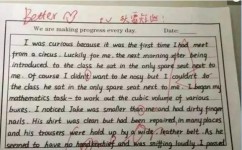 Better
We are making progress every day. Date:
I was curious because it was the first time I had meet
from a circus. Luckily, the next morning after being
introduced to the class he sat in the only spare seat next to
me. Of course I didn't want to be nosy but I couldn't to
the class he sat in the only spare seat next to me. I began my
mathematics task- to work out the cubic volume of various
buxes. I noticed Jake was smaller than me and had dirty finger
nails. His shirt was clean but had been repaired in many places
and his trousers were hold up by a wide leather belt. As he
seemed to have no handkerchief and was sniffing loudly I